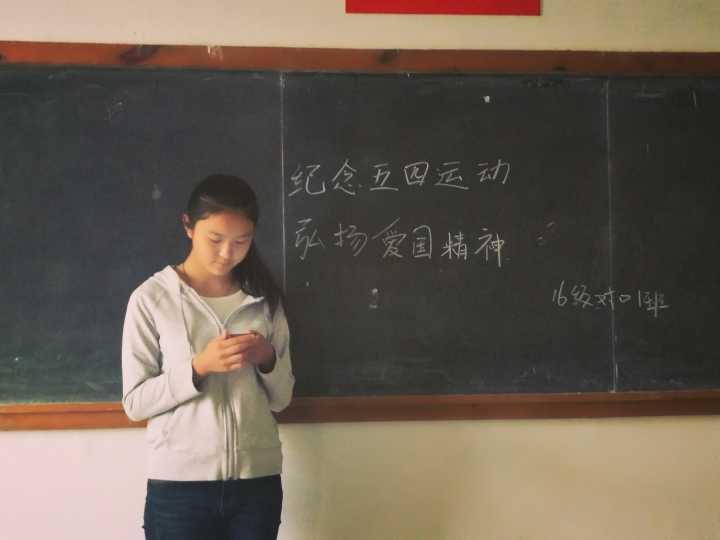 纪念五四运动
弘扬爱国精神
16级对口1班